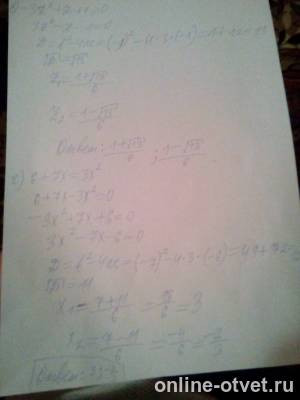 -3z²+z+1=0
3z²-z-1=0
D=b²-4ac=(-1)²-4·3·(-1)=1+12=13
√D=√13
z₁=(1+√13)/6
z₂=(1-√13)/6
Ответ: (1+√13)/6 ; (1-√13)/6
6+7x=3x²
6+7x-3x²=0
-3x²+7x+6=0
3x²-7x-6=0
D=b²-4ac=(-7)²-4·3·(-6)=49+72=
√D=11
x₁=(7+11)/6=18/6=3
x₂=(7-11)/6=-4/6=-2/3
Ответ: 3;
online-otvet.ru